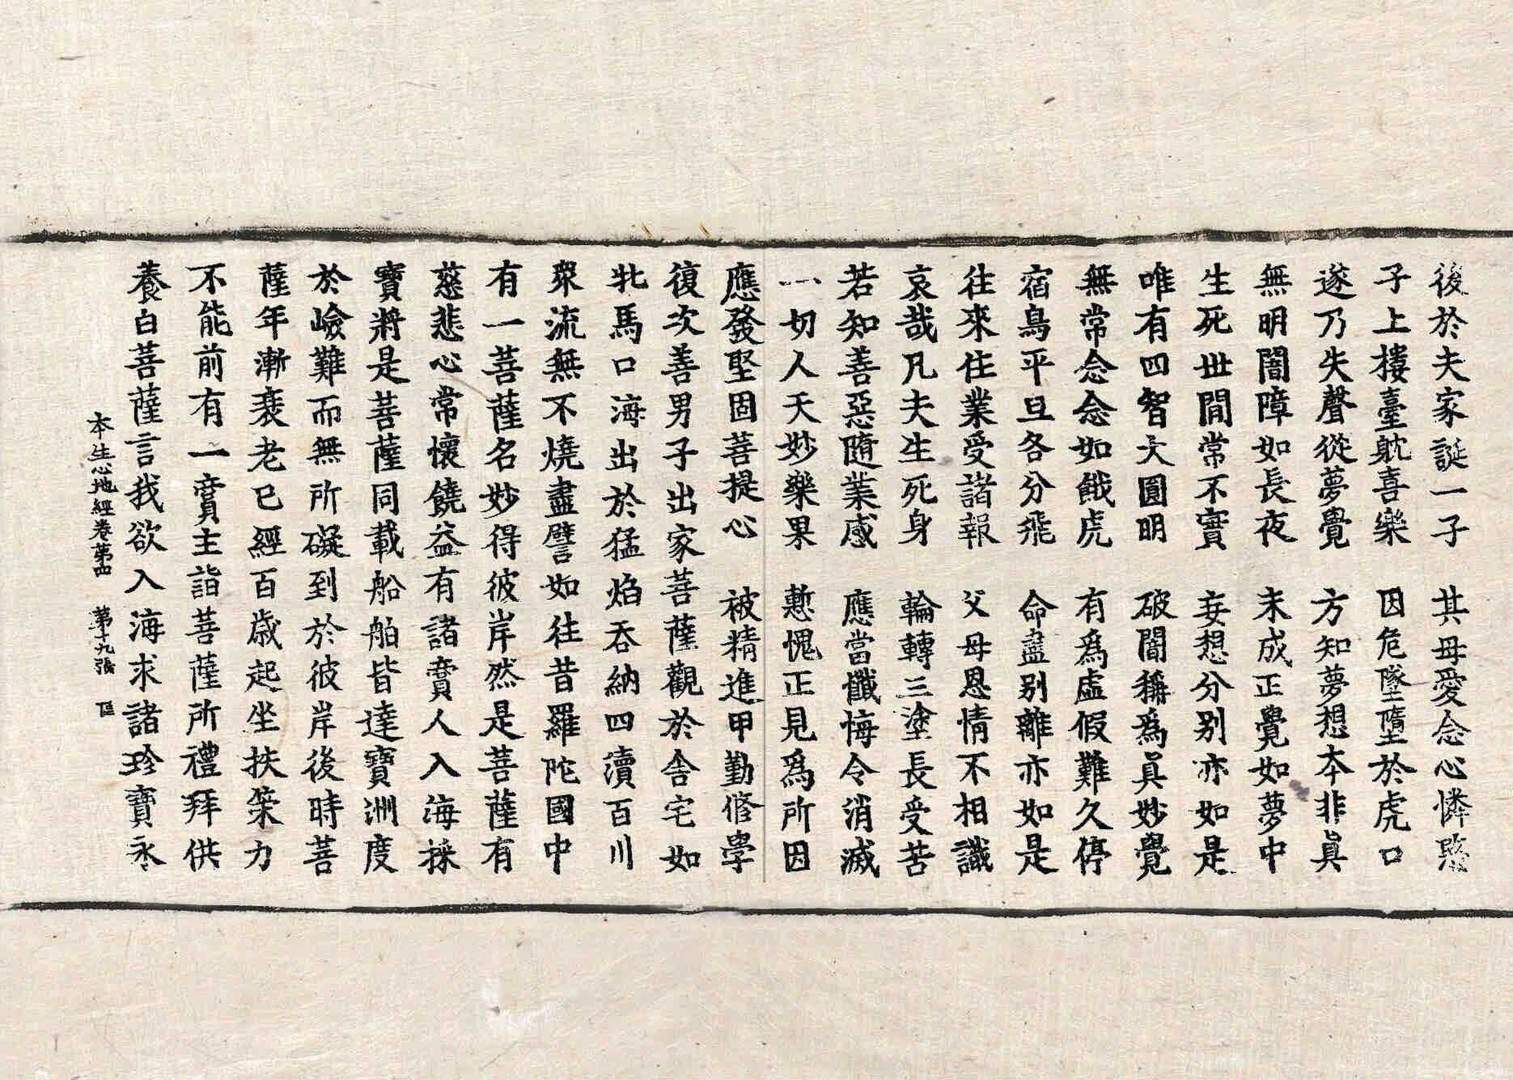 後於夫家誕一子　其母愛念心憐愍
子上樓臺躭喜樂　因危墜墮於虎口
遂乃失聲從夢覺　方知夢想本非眞
無明闇障如長夜　未成正覺如夢中
生死世間常不實　妄想分别亦如是
唯有四智大圓明　破闇稱爲眞妙覺
無常念念如餓虎　有爲虛假難久停
宿鳥平旦各分飛　命盡别離亦如是
往來往業受諸報　父母恩情不相識
哀哉凡夫生死身　輪轉三塗長受苦
若知善惡隨業感　應當懺悔令消滅
一切人天妙樂果　慙愧正見爲所因
應發堅固菩提心　被精進甲勤修學
復次善男子出家菩薩觀於舍宅如
牝馬口海出於猛焰吞納四瀆百川
衆流無不燒盡譬如往昔羅陀國中
有一菩薩名妙得彼岸然是菩薩有
慈悲心常懷饒益有諸賫人入海採
寶將是菩薩同載船舶皆達寶洲度
於嶮難而無所礙到於彼岸後時菩
薩年漸衰老已經百歲起坐扶策力
不能前有一賫主詣菩薩所禮拜供
養白菩薩言我欲入海求諸珍寶永
本生心地經卷第四　第十九張